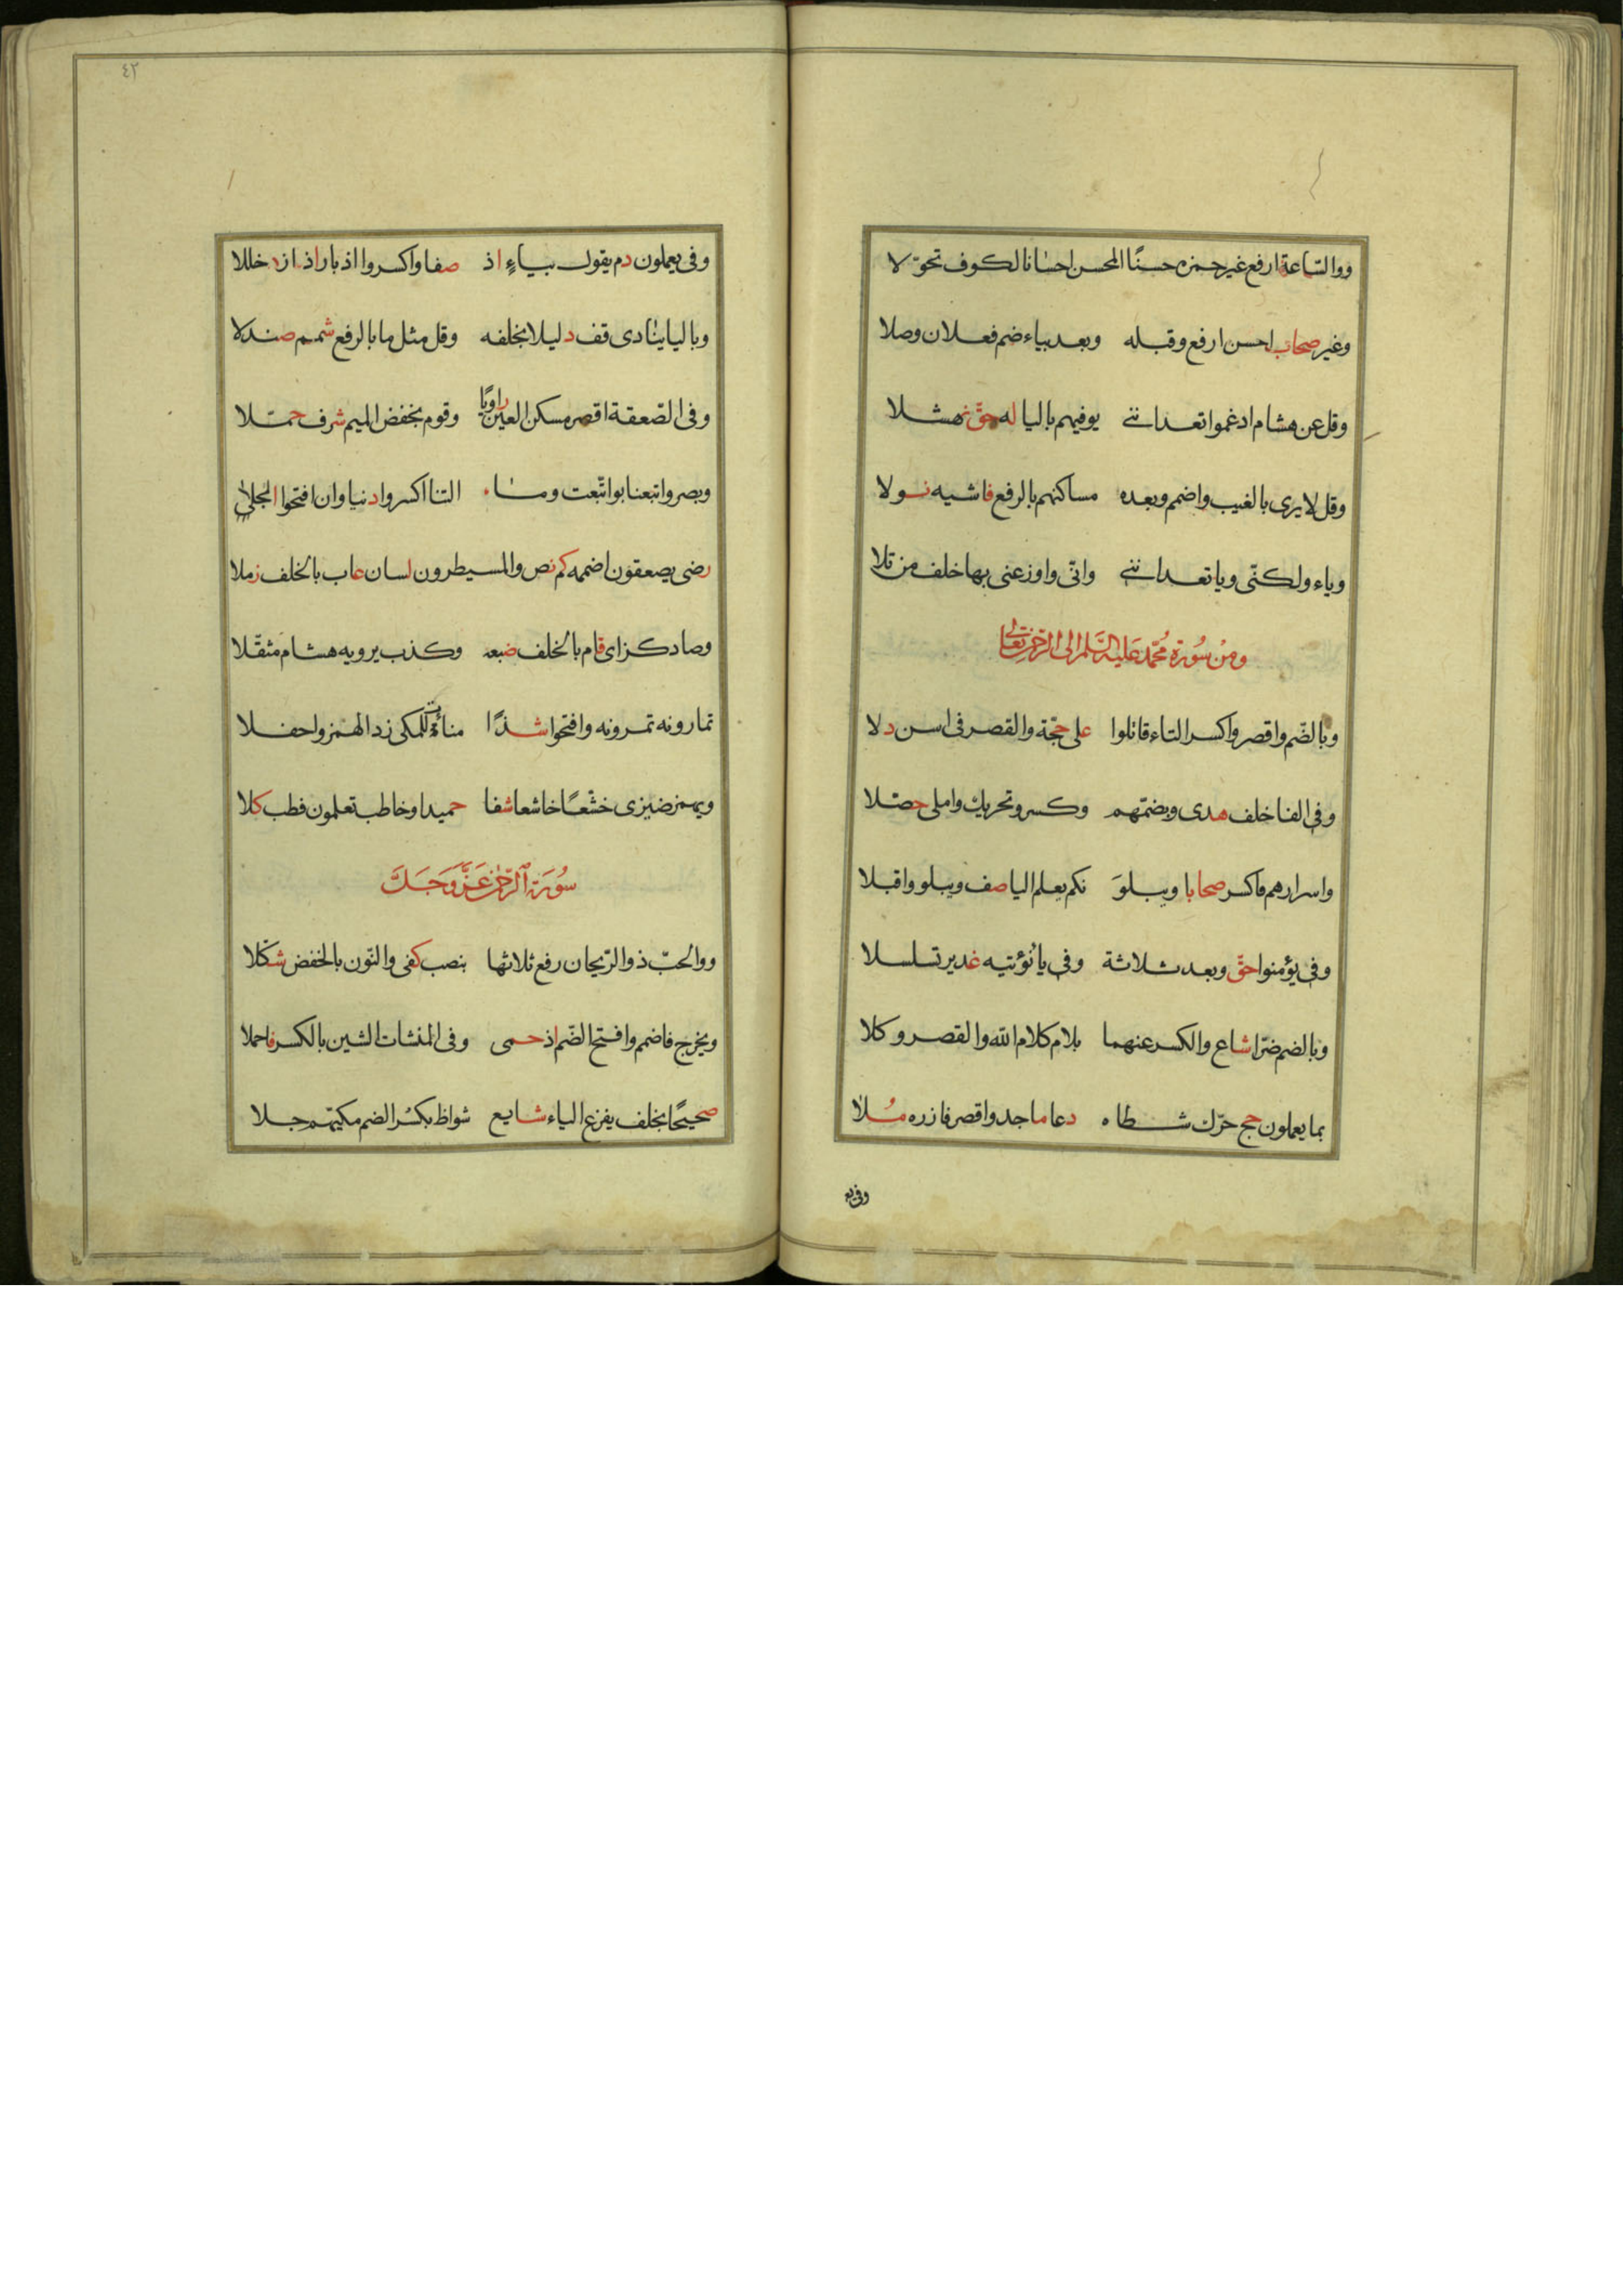 ووالسّاعة ارفع غير حمزه حسنًا المحسن احسانا لكوف تحوّلا
وغير صحاب احسن ارفع وقبله وبعد بياء ضم فعلان وصلا
وقل عن هشام ادغموا تعدانني يوفيهم باليا له حقّ نهشلا
وقل لا يرى بالغيب واضمم وبعده مساكنهم بالرفع فاشيه نولا
وياء ولكنّى ويا تعدانني وانّى واوزعنى بها خلف من تلا
ومن سُورة مُحَمّد عَليه السَّلم الى الرّحمٰن تعالى
وبالضّم واقصر واكسر التاء قاتلوا على حجّة والقصر فى اسن دلا
وفى انفا خلف هدى وبضمّهم وكسر وتحريك واملى حصّلا
واسرارهم فاكسر صحابا ويبلوَ نكم يعلم اليا صف ويبلو واقبلا
وفى يؤمنوا حقّ وبعد ثلاثة وفى يا نُؤتيه غدير تسلسلا
وبالضم ضرّا شاع والكسر عنهما بلام كلام الله والقصر وكلا
بما يعملون حج حرّك شطاه دعا ماجد واقصر فازره مُلا
وفى يع
٤٢
وفى يعملون دم يقول بياءٍ اذ صفا واكسروا ادبار اذ از دخللا
وباليا ينادى قف دليلا بخلفه وقل مثل ما بالرفع شمم صندلا
وفى الصّعقة اقصر مسكن العين راويًا وقوم بخفض الميم شرف حمّلا
وبصر واتبعنا بواتّبعت وما التنا اكسروا دنيا وان افتحوا الجلا
رضى يصعقون اضممه كم نص والمسيطرون لسان عاب بالخلف زملا
وصاد كزاى قام بالخلف ضبعه وكذب يرويه هشام مثقّلا
تمارونه تمرونه وافتحوا شذًا مناءة للمكى زد الهمز واحفلا
ويهمز ضيزى خشّعًا خاشعا شفا حميدا وخاطب تعلمون فطب كلا
سُورَة ٱلرّحمٰن عَزَّ وَجَلَّ
ووالحبّ ذو الرّيحان رفع ثلاثها بنصب كفى والنّون بالخفض شكّلا
ويخرج فاضمم وافتح الضّم اذ حمى وفى المنشات الشين بالكسر فاحملا
صحيحًا بخلف يفرغ الياء شايع شواظ بكسْر الضم مكيّهم جلا